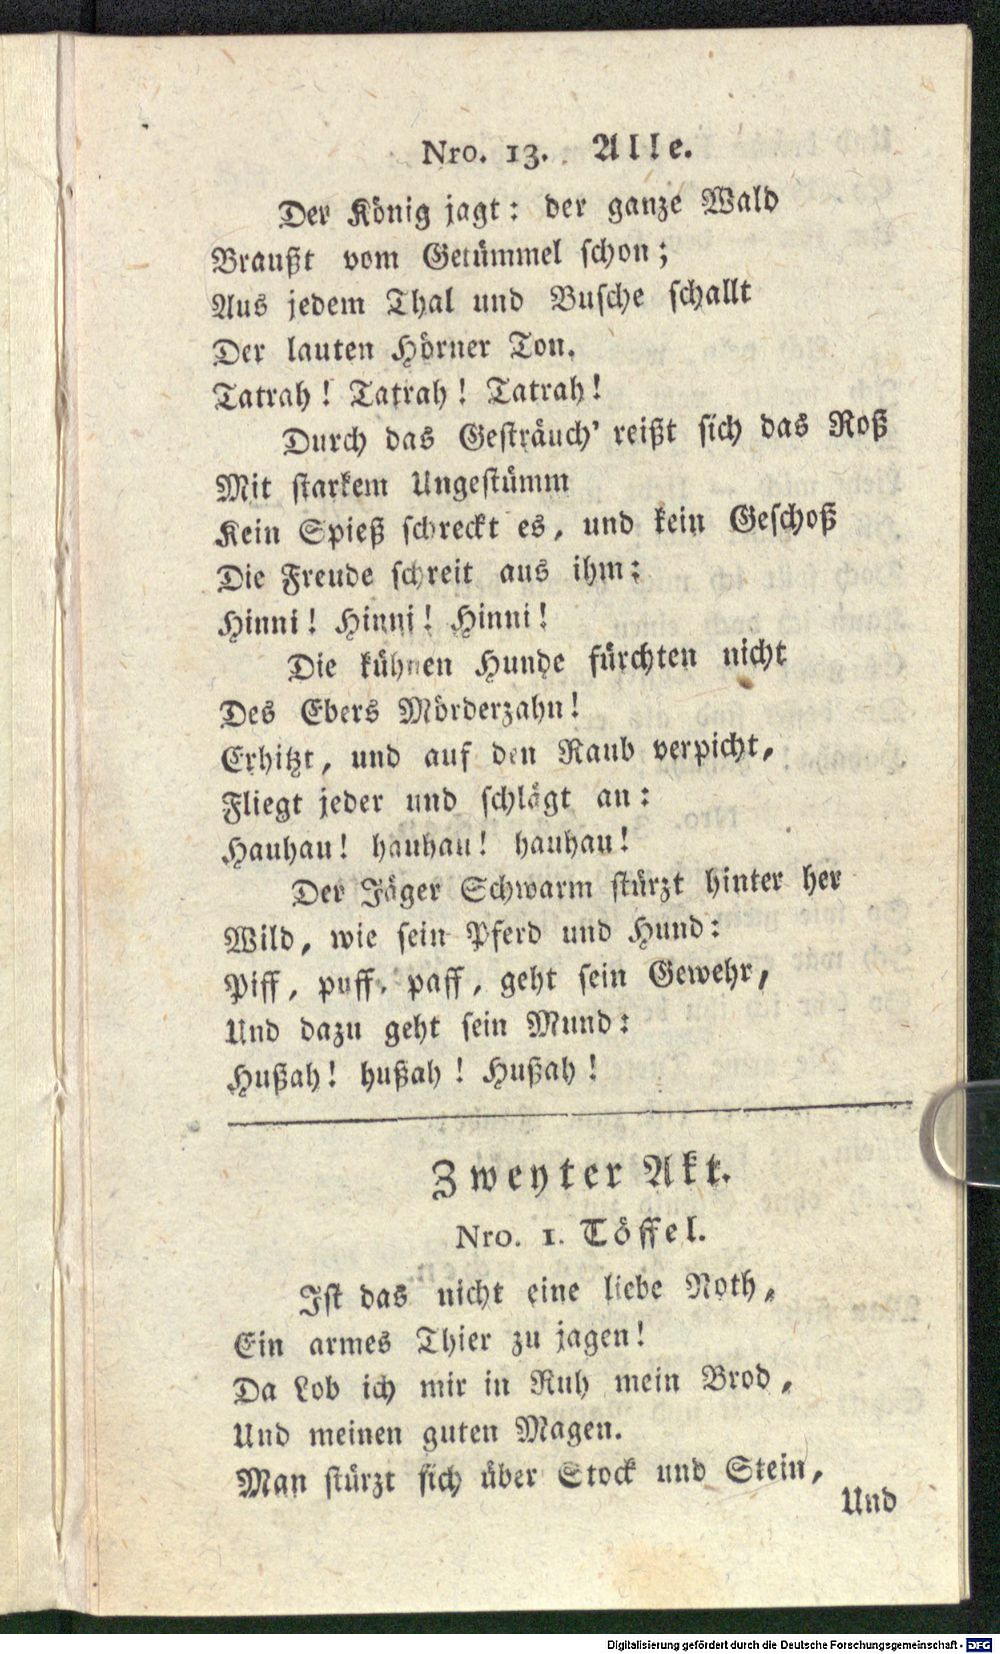 Nro. 13. Alle.
Der König jagt: der ganze Wald
Braußt vom Getümmel schon;
Aus jedem Thal und Busche schallt
Der lauten Hörner Ton.
Tatrah! Tatrah! Tatrah!
Durch das Gesträuch' reißt sich das Roß
Mit starkem Ungestümm
Kein Spieß schreckt es, und kein Geschoß
Die Freude schreit aus ihm:
Hinni! Hinni! Hinni!
Die kühnen Hunde fürchten nicht
Des Ebers Mörderzahn!
Erhitzt, und auf den Raub verpicht,
Fliegt jeder und schlägt an:
Hauhau! hauhau! hauhau!
Der Jäger Schwarm stürzt hinter her
Wild, wie sein Pferd und Hund:
Piff, puff, paff, geht sein Gewehr,
Und dazu geht sein Mund:
Hußah! hußah! Hußah!
Zweyter Akt.
Nro. 1. Töffel.
Ist das nicht eine liebe Noth,
Ein armes Thier zu jagen!
Da Lob ich mir in Ruh mein Brod,
Und meinen guten Magen.
Man stürzt sich über Stock und Stein,
Und
Digitalisierung gefördert durch die Deutsche Forschungsgemeinschaft - DFG